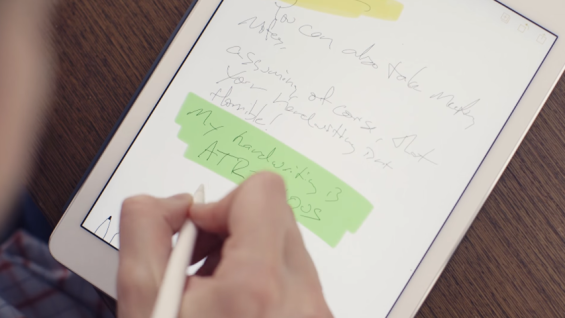 You can also take
Notes,
assuming of course, that
your handwriting
Horrible!
My handwriting is